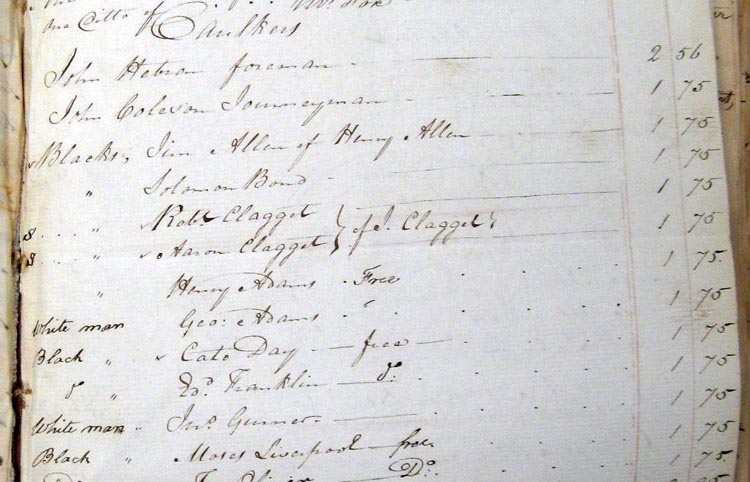 One Ditto of Caulkers
John Hebron foreman 2 56
John Coleson Journeyman 1 75
Blacks, Jim Allen of Henry Allen 1 75
" Solomon Bond 1 75
8 " Robt. Clagget } of J. Clagget 1 75
8 " Aaron Clagget 1 75
" Henry Adams Free 1 75
White man Geo: Adams 1 75
Black " Cato Day — free 1 75
do " Ed. Franklin — do: 1 75
White man " Jno. Gunner 1 75
Black " Moses Liverpool — free 1 75
Do: